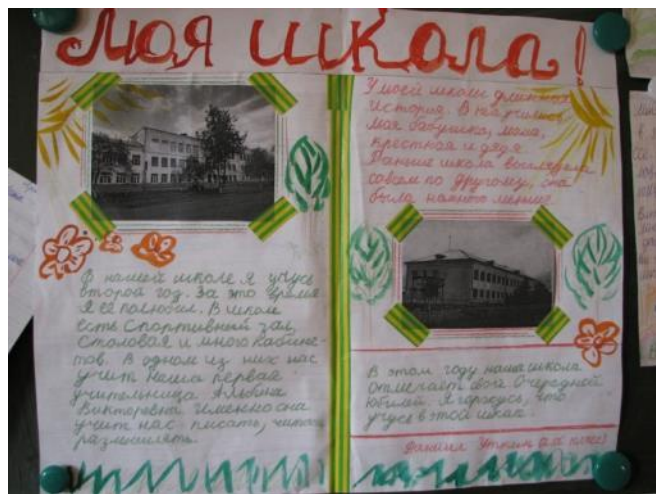 Моя школа!
В нашей школе я учусь
второй год. За это время
я её полюбил. В школе
есть спортивный зал,
столовая и много кабине-
тов. В одном из них нас
учит наша первая
учительница Альбина
Викторовна. Именно она
учит нас писать, читать,
размышлять.
У моей школы длинная
история. В ней учились
моя бабушка, мама,
крестная и дядя.
Раньше школа выглядела
совсем по другому, она
была намного меньше.
В этом году наша школа
отмечает свой очередной
юбилей. Я горжусь, что
учусь в этой школе.
Даниил Уткин